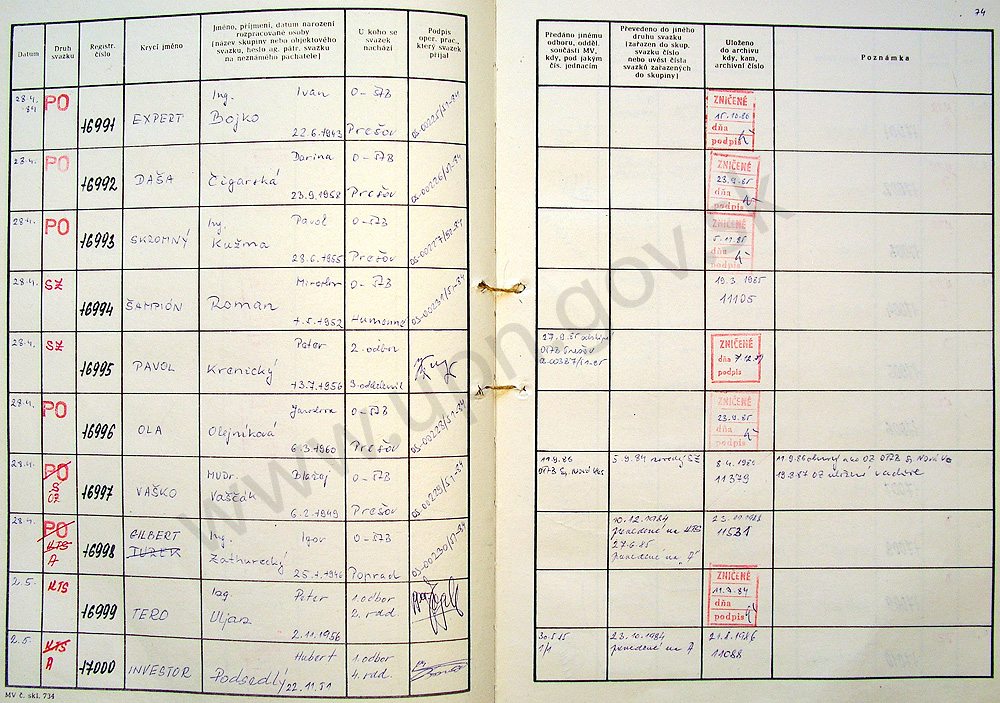 74
Datum
Druh svazku
Registr. číslo
Krycí jméno
Jméno, příjmení, datum narození
rozpracované osoby
(název skupiny nebo objektového
svazku, heslo ag. pátr. svazku
na neznámého pachatele)
U koho se
svazek
nachází
Podpis
oper. prac.,
který svazek
přijal
Předáno jinému
odboru, odděl.
součásti MV,
kdy, pod jakým
čís. jednacím
Převedeno do jiného
druhu svazku
(zařazen do skup.
svazku číslo
nebo uvést čísla
svazků zařazených
do skupiny)
Uloženo
do archivu
kdy, kam,
archivní číslo
Poznámka
28.4. 84 PO 16991 EXPERT Ing. Ivan Bojko 22.6.1943 O-ŠTB Prešov OS-00225/51-84 ZNIČENÉ 15.10.86 dňa podpis
28.4. PO 16992 DAŠA Darina Čigarská 23.9.1958 O-ŠTB Prešov OS-00226/51-84 ZNIČENÉ 23.9.85 dňa podpis
28.4. PO 16993 SKROMNÝ Ing. Pavol Kužma 28.6.1955 O-ŠTB Prešov OS-00227/51-84 ZNIČENÉ 5.11.85 dňa podpis
28.4. SZ 16994 ŠAMPIÓN Miroslav Roman 7.5.1952 O-ŠTB Humenné OS-00231/51-84 19.3.1985 11105
28.4. SZ 16995 PAVOL Peter Krenický 13.7.1956 2. odbor 3 oddelenie ZNIČENÉ dňa 7.12.89 podpis
28.4. PO 16996 OLA Jaroslava Olejníková 6.3.1960 O-ŠTB Prešov OS-00228/51-84 ZNIČENÉ 23.9.85 dňa podpis
28.4. PO S OZ 16997 VAŠKO MUDr. Blažej Vaščák 6.2.1949 O-ŠTB Prešov OS-00229/51-84 11.9.86 OŠTB Sp. Nová Ves 5.9.84 SZ 8.4.1986 11379
28.4. PO KTS A 16998 GILBERT TUREK Ing. Igor Zathurecký 25.7.1946 O-ŠTB Poprad OS-00230/51-84 10.12.1984 prevedené na KTS 27.6.85 prevedené na "A" 23.11.1988 11531
2.5. KTS 16999 TERO Ing. Peter Uljan 2.11.1956 1. odbor 2. odd ZNIČENÉ 11.9.84 dňa podpis
2.5. KTS A 17000 INVESTOR Hubert Podsedlý 22.11.51 1. odbor 4. odd. 30.5.85 1/1 23.10.1984 prevedené na A 21.8.1986 11088
MV č. skl. 734
www.upn.gov.sk